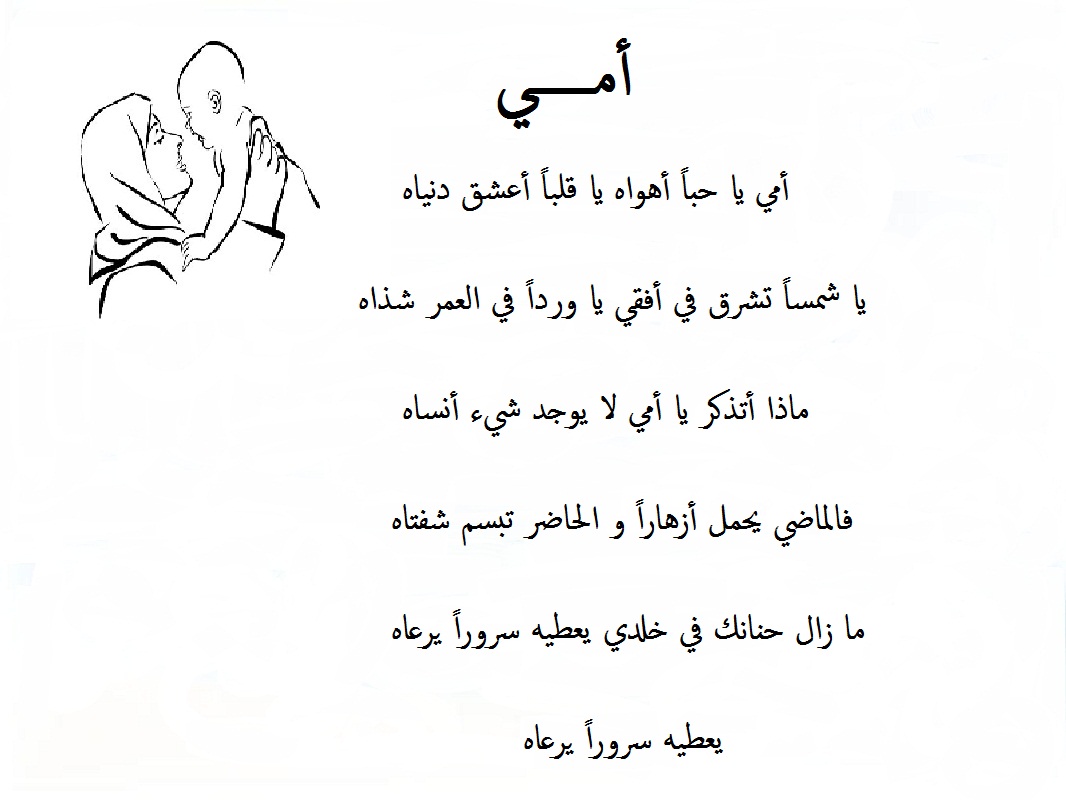 أمـــي
أمي يا حباً أهواه يا قلباً أعشق دنياه
يا شمساً تشرق في أفقي يا ورداً في العمر شذاه
ماذا أتذكر يا أمي لا يوجد شيء أنساه
فالماضي يحمل أزهاراً و الحاضر تبسم شفتاه
ما زال حنانك في خلدي يعطيه سروراً يرعاه
يعطيه سروراً يرعاه